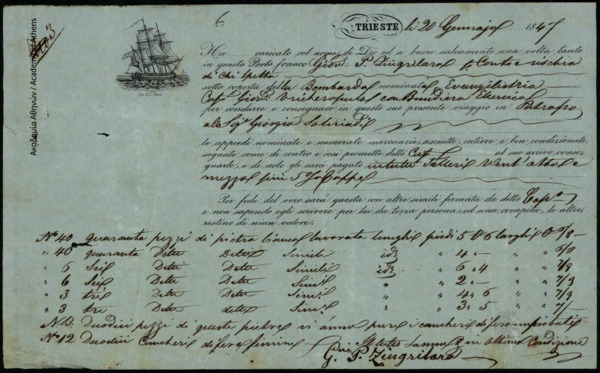 Ακαδημία Αθηνών / Academy of Athens
TRIESTE li 20 Gennajo 1847
Ha caricato col nome di Dio ed a buon salvamento una volta tanto
in questo Porto franco Gior. P. Zingrilara p Conto e rischio
di Chi Spetta
sotto coperta della Bombarda nominata Evangelistria
Cap. Gior. con Bandiera Ellenica
per condurre e consegnare in questo suo presente viaggio in Patrasso
al Sig. Giorgio Sotiriadi
le appiedi nominate e numerate mercanzie, asciutte, intiere e ben condizionate,
segnate come di contro e così promette detto Cap. al suo arrivo conse-
gnarle, e di nolo gli sarà pagato in tutto Talleri Vent'otto e
mezzo più 5 % Cappa
Per fede del vero sarà questa con altre simili firmata da detto Cap.
e non sapendo egli scrivere per lui da terza persona ed una compita, le altre
restino di niun valore.
No 40 quaranta pezzi di pietra lavorata lunghi piedi 5 & 6 larghi
" 40 quaranta Dette Dette Simile " 4 "
" 6 Sei Dette Dette Simile " 6 4 "
" 6 Sei Dette Dette Simile " 2 "
" 3 tre Dette Dette Simile " 4 6 "
" 3 tre Dette Dette Simile " 3 5 "
N.B. Dodici pezzi di queste pietre
No 12 Dodici in Condizione
G. P. Zingrilara